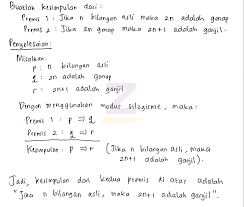 Buatlah kesimpulan dari:
Premis 1 : Jika n bilangan asli maka 2n adalah genap
Premis 2 : Jika 2n genap maka 2n+1 adalah ganjil.
Penyelesaian:
Misalkan:
p : n bilangan asli
q : 2n adalah genap
r : 2n+1 adalah ganjil
Dengan menggunakan modus silogisme, maka:
Premis 1 : p ⇒ q
Premis 2 : q ⇒ r
Kesimpulan : p ⇒ r (Jika n bilangan asli, maka
2n+1 adalah ganjil).
Jadi, kesimpulan dari kedua premis di atas adalah
"Jika n bilangan asli, maka 2n+1 adalah ganjil".